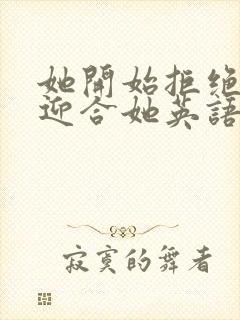 她開始拒绝
迎合她英語
寂寞的舞者